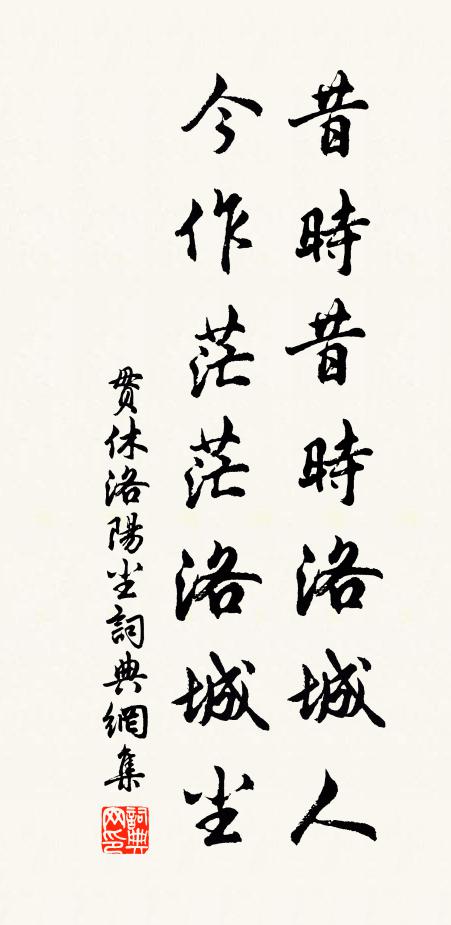 昔時昔時洛城人
今作茫茫洛城尘
贯休洛陽尘詞典網集
詞典网印